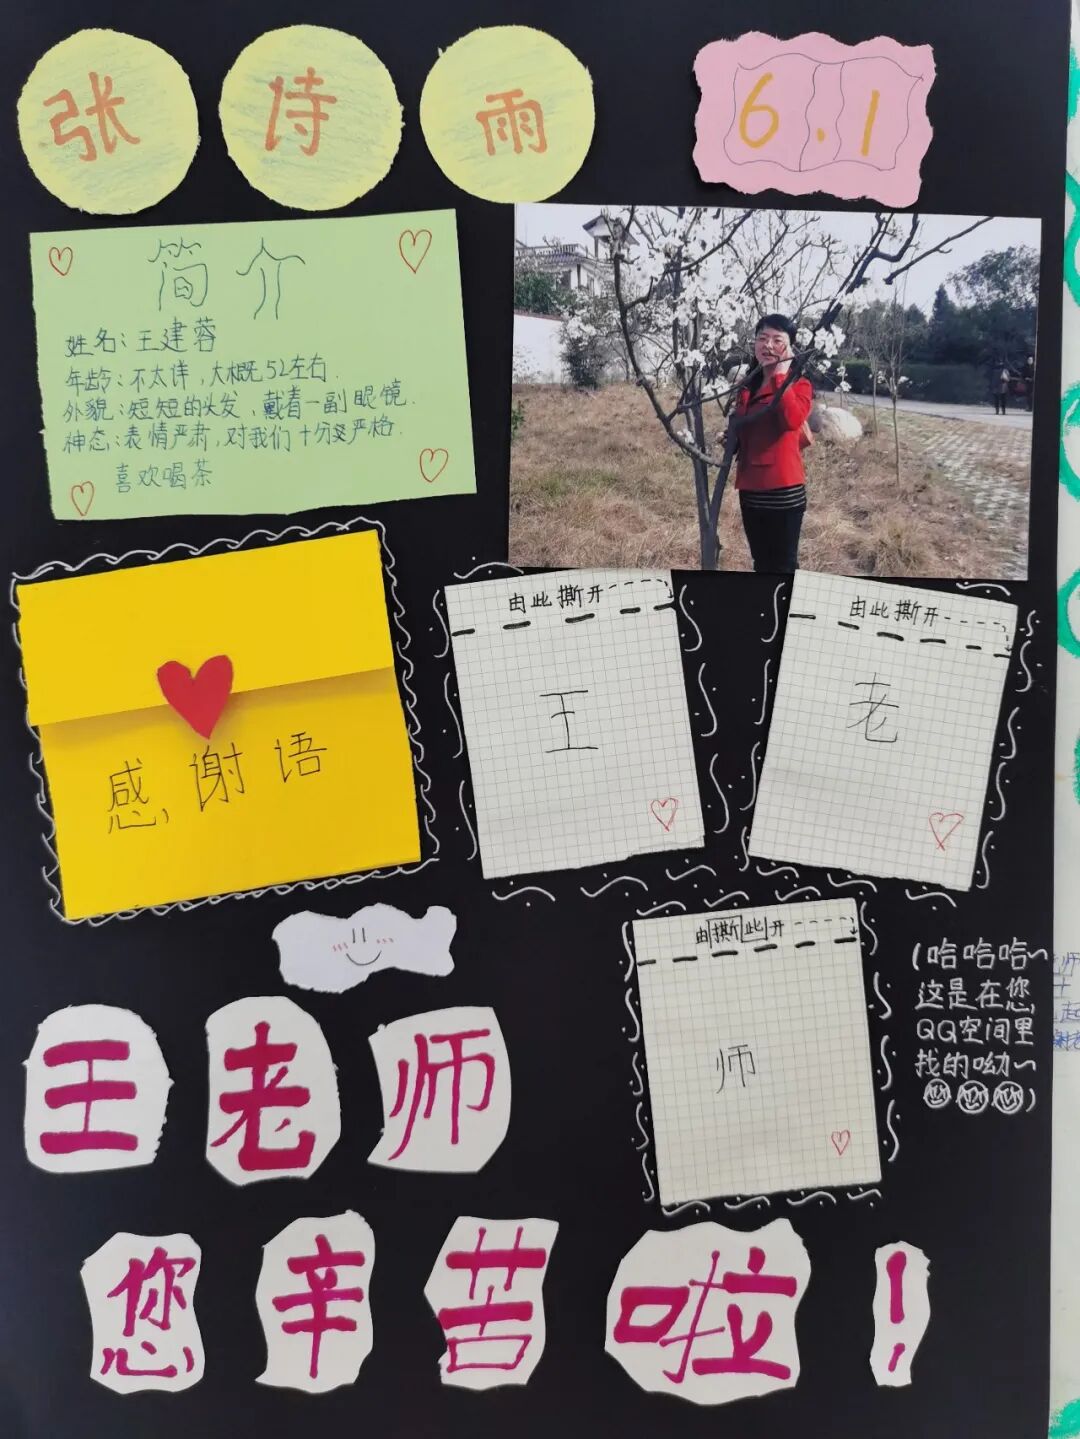 张诗雨
6.1
简介
姓名：王建蓉
年龄：不太详，大概52左右.
外貌：短短的头发，戴着一副眼镜.
神态：表情严肃，对我们十分严格.
喜欢喝茶
感谢语
由此撕开
王
由此撕开
老
由撕此开
师
(哈哈哈~
这是在您
QQ空间里
找的呦~
)
王老师
您辛苦啦！